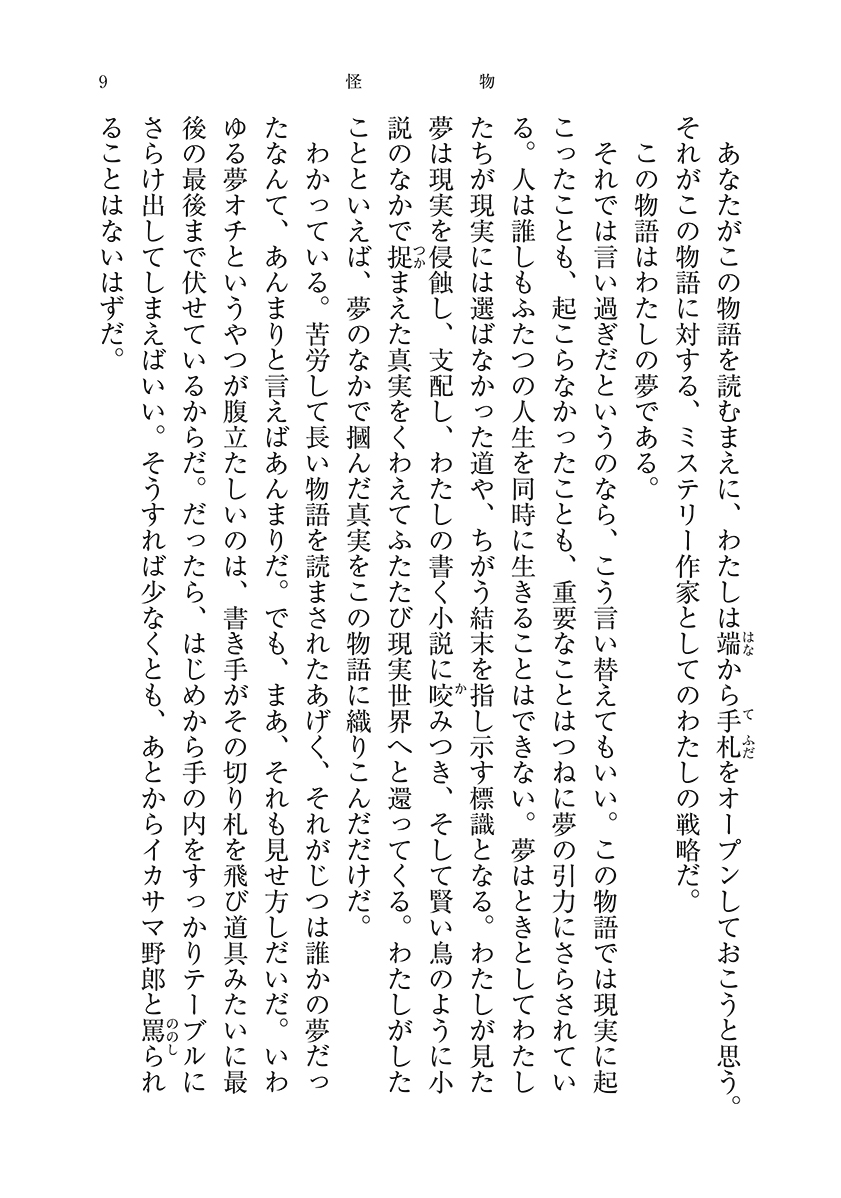 9
怪物
あなたがこの物語を読むまえに、わたしは端はなから手札てふだをオープンしておこうと思う。
それがこの物語に対する、ミステリー作家としてのわたしの戦略だ。
この物語はわたしの夢である。
それでは言い過ぎだというのなら、こう言い替えてもいい。この物語では現実に起
こったことも、起こらなかったことも、重要なことはつねに夢の引力にさらされてい
る。人は誰しもふたつの人生を同時に生きることはできない。夢はときとしてわたし
たちが現実には選ばなかった道や、ちがう結末を指し示す標識となる。わたしが見た
夢は現実を侵蝕し、支配し、わたしの書く小説に咬かみつき、そして賢い鳥のように小
説のなかで捉つかまえた真実をくわえてふたたび現実世界へと還ってくる。わたしがした
ことといえば、夢のなかで摑んだ真実をこの物語に織りこんだだけだ。
わかっている。苦労して長い物語を読まされたあげく、それがじつは誰かの夢だっ
たなんて、あんまりと言えばあんまりだ。でも、まあ、それも見せ方しだいだ。いわ
ゆる夢オチというやつが腹立たしいのは、書き手がその切り札を飛び道具みたいに最
後の最後まで伏せているからだ。だったら、はじめから手の内をすっかりテーブルに
さらけ出してしまえばいい。そうすれば少なくとも、あとからイカサマ野郎と罵ののしられ
ることはないはずだ。